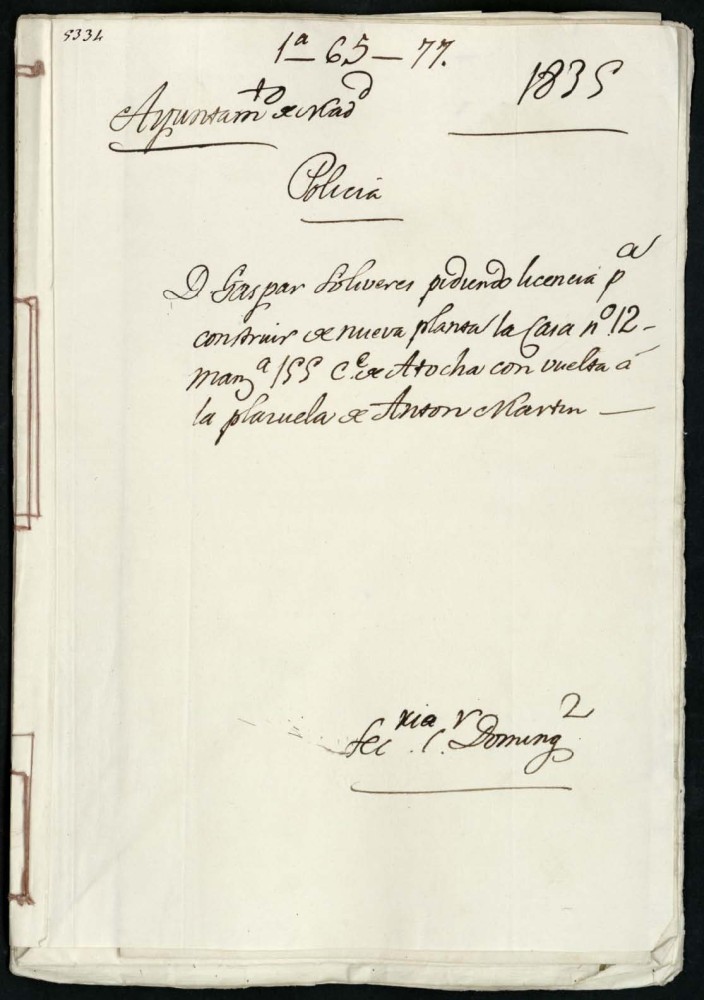 5334
1ª-65-77.
1835
Ayuntamto de Madd
Policia
D Gaspar Soliveres pidiendo licencia pa
construir de nueva planta la Casa nº 12-
Manza 155 Ce de Atocha con vuelta á
la plazuela de Anton Martin
Secria Sr Domingz